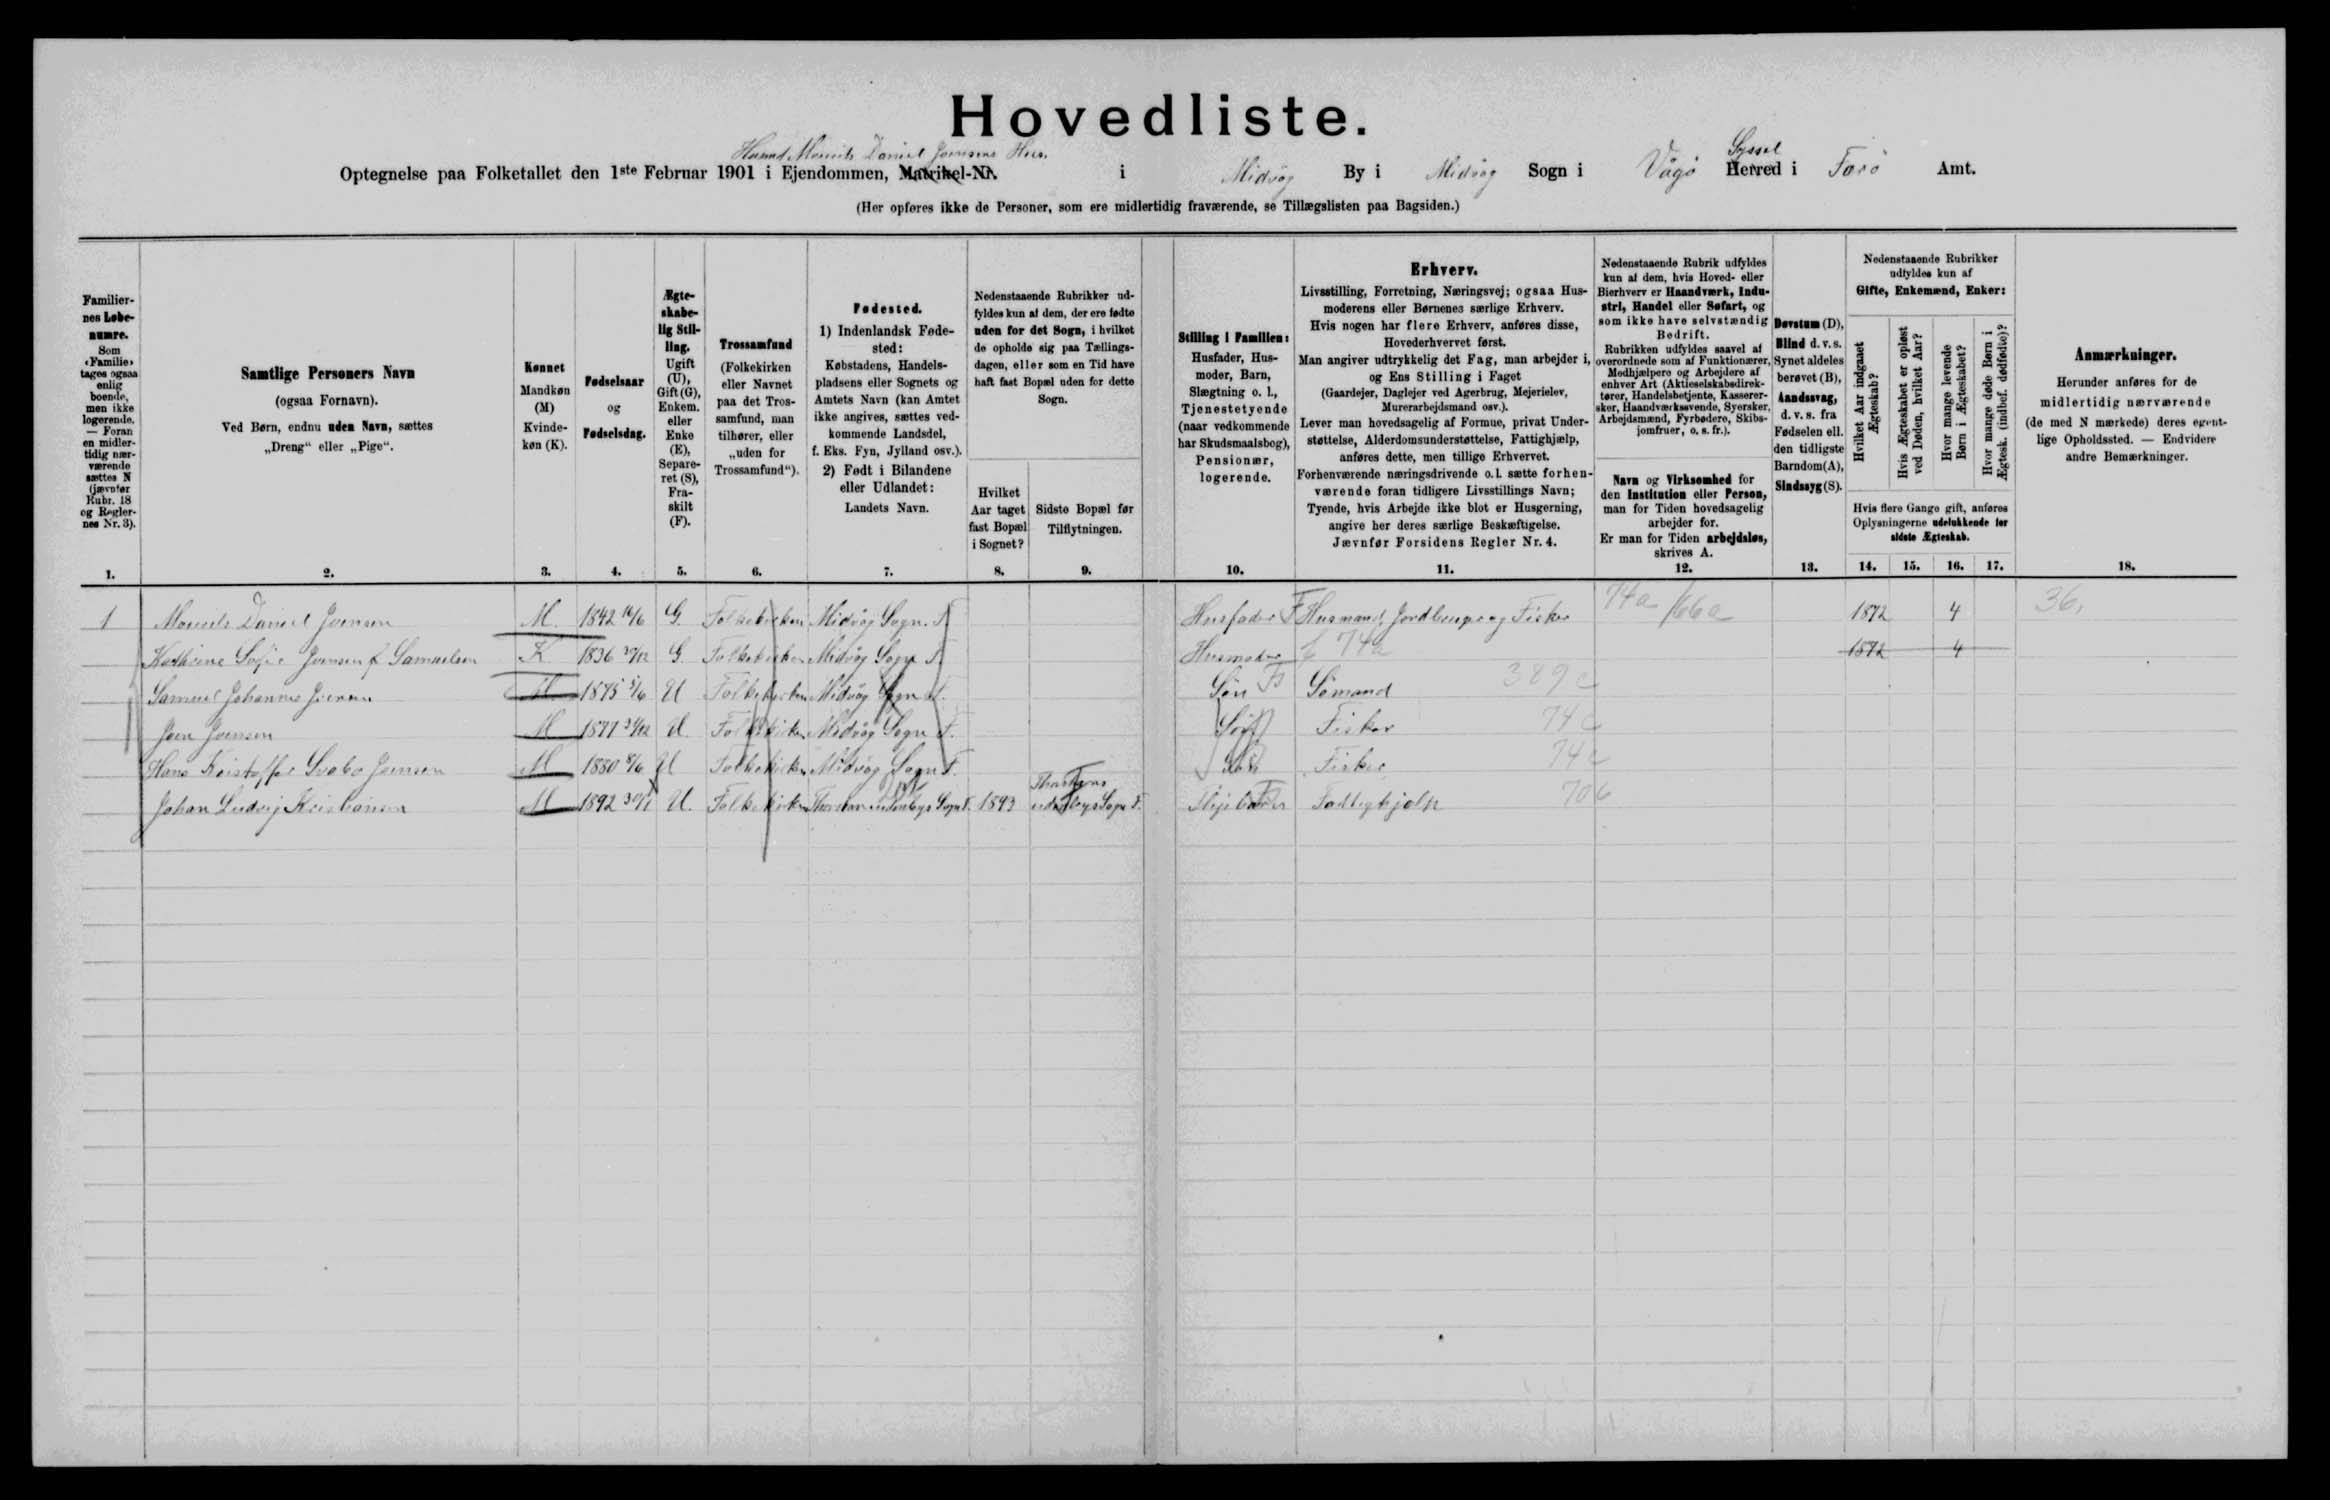 Hovedliste.
Husmd Mourits Daniel Joensens Hus.
Syssel
Optegnelse paa Folketallet den 1ste Februar 1901 i Ejendommen, Matrikel-Nr. i Midvåg By i Midvåg Sogn i Vågø Herred i Færø Amt.
(Her opføres ikke de Personer, som ere midlertidig fraværende, se Tillægslisten paa Bagsiden.)
Familier-
nes Løbe-
numre.
Som
‹Familie›
tages ogsaa
enlig
boende,
men ikke
logerende.
— Foran
en midler-
tidig nær-
værende
sættes N
(jævnfør
Rubr. 18
og Regler-
nes Nr. 3).
1.
Samtlige Personers Navn
(ogsaa Fornavn).
Ved Børn, endnu uden Navn, sættes
„Dreng“ eller „Pige“.
2.
Kønnet
Mandkøn
(M)
Kvinde-
køn (K).
3.
Fødselsaar
og
Fødselsdag.
4.
Ægte-
skabe-
lig Stil-
ling.
Ugift
(U),
Gift (G),
Enkem.
eller
Enke
(E),
Separe-
ret (S),
Fra-
skilt
(F).
5.
Trossamfund
(Folkekirken
eller Navnet
paa det Tros-
samfund, man
tilhører, eller
„uden for
Trossamfund“).
6.
Fødested.
1) Indenlandsk Føde-
sted:
Købstadens, Handels-
pladsens eller Sognets og
Amtets Navn (kan Amtet
ikke angives, sættes ved-
kommende Landsdel,
f. Eks. Fyn, Jylland osv.).
2) Født i Bilandene
eller Udlandet:
Landets Navn.
7.
Nedenstaaende Rubrikker ud-
fyldes kun af dem, der ere fødte
uden for det Sogn, i hvilket
de opholde sig paa Tællings-
dagen, eller som en Tid have
haft fast Bopæl uden for dette
Sogn.
Hvilket
Aar taget
fast Bopæl
i Sognet?
8.
Sidste Bopæl før
Tilflytningen.
9.
Stilling i Familien:
Husfader, Hus-
moder, Barn,
Slægtning o. l.,
Tjenestetyende
(naar vedkommende
har Skudsmaalsbog),
Pensionær,
logerende.
10.
Erhverv.
Livsstilling, Forretning, Næringsvej; ogsaa Hus-
moderens eller Børnenes særlige Erhverv.
Hvis nogen har flere Erhverv, anføres disse,
Hovederhvervet først.
Man angiver udtrykkelig det Fag, man arbejder i,
og Ens Stilling i Faget
(Gaardejer, Daglejer ved Agerbrug, Mejerielev,
Murerarbejdsmand osv.).
Lever man hovedsagelig af Formue, privat Under-
støttelse, Alderdomsunderstøttelse, Fattighjælp,
anføres dette, men tillige Erhvervet.
Forhenværende næringsdrivende o.l. sætte forhen-
værende foran tidligere Livsstillings Navn;
Tyende, hvis Arbejde ikke blot er Husgerning,
angive her deres særlige Beskæftigelse.
Jævnfør Forsidens Regler Nr. 4.
11.
Nedenstaaende Rubrik udfyldes
kun af dem, hvis Hoved- eller
Bierhverv er Haandværk, Indu-
stri, Handel eller Søfart, og
som ikke have selvstændig
Bedrift.
Rubrikken udfyldes saavel af
overordnede som af Funktionærer,
Medhjælpere og Arbejdere af
enhver Art (Aktieselskabsdirek-
tører, Handelsbetjente, Kasserer-
sker, Haandværkssvende, Syersker,
Arbejdsmænd, Fyrbødere, Skibs-
jomfruer, o. s. fr.).
Navn og Virksomhed for
den Institution eller Person,
man for Tiden hovedsagelig
arbejder for.
Er man for Tiden arbejdsløs,
skrives A.
12.
Døvstum (D),
Blind d. v. s.
Synet aldeles
berøvet (B),
Aandssvag,
d. v. s. fra
Fødselen ell.
den tidligste
Barndom (A),
Sindssyg (S).
13.
Nedenstaaende Rubrikker
udfyldes kun af
Gifte, Enkemænd, Enker:
Hvilket Aar indgaaet
Ægteskab?
Hvis Ægteskabet er opløst
ved Døden, hvilket Aar?
Hvor mange levende
Børn i Ægteskabet?
Hvor mange døde Børn i
Ægtesk. (indbef. dødfødte)?
Hvis flere Gange gift, anføres
Oplysningerne udelukkende for
sidste Ægteskab.
14. 15. 16. 17.
Anmærkninger.
Herunder anføres for de
midlertidig nærværende
(de med N mærkede) deres egent-
lige Opholdssted. — Endvidere
andre Bemærkninger.
18.
1 Mourits Daniel Joensen M. 1842 16/6 G. Folkekirken Midvåg Sogn. F. Husfader F Husmand, Jordbruger og Fisker 74a /66a 1872 4 36,
Kathrine Sofie Joensen f. Samuelsen K. 1836 G. Folkekirken Midvåg Sogn F. Husmoder 74a 1872 4
Samuel Johannes Joensen M 1875 U Folkekirken Midvåg Sogn F. Søn Sømand 389c
Joen Joensen M 1877 U. Folkekirken Midvåg Sogn F. Søn Fisker 74c
Hans Kristoffer Svabo Joensen M 1880 U Folkekirken Midvåg Sogn F. Søn Fisker 74c
Johan Ludvig Kristiansen M 1892 U. Folkekirken Thorshavn udenbys Sogn F. 1893 Thorshavns udenbys Sogn F. Plejebarn Fattighjælp 706